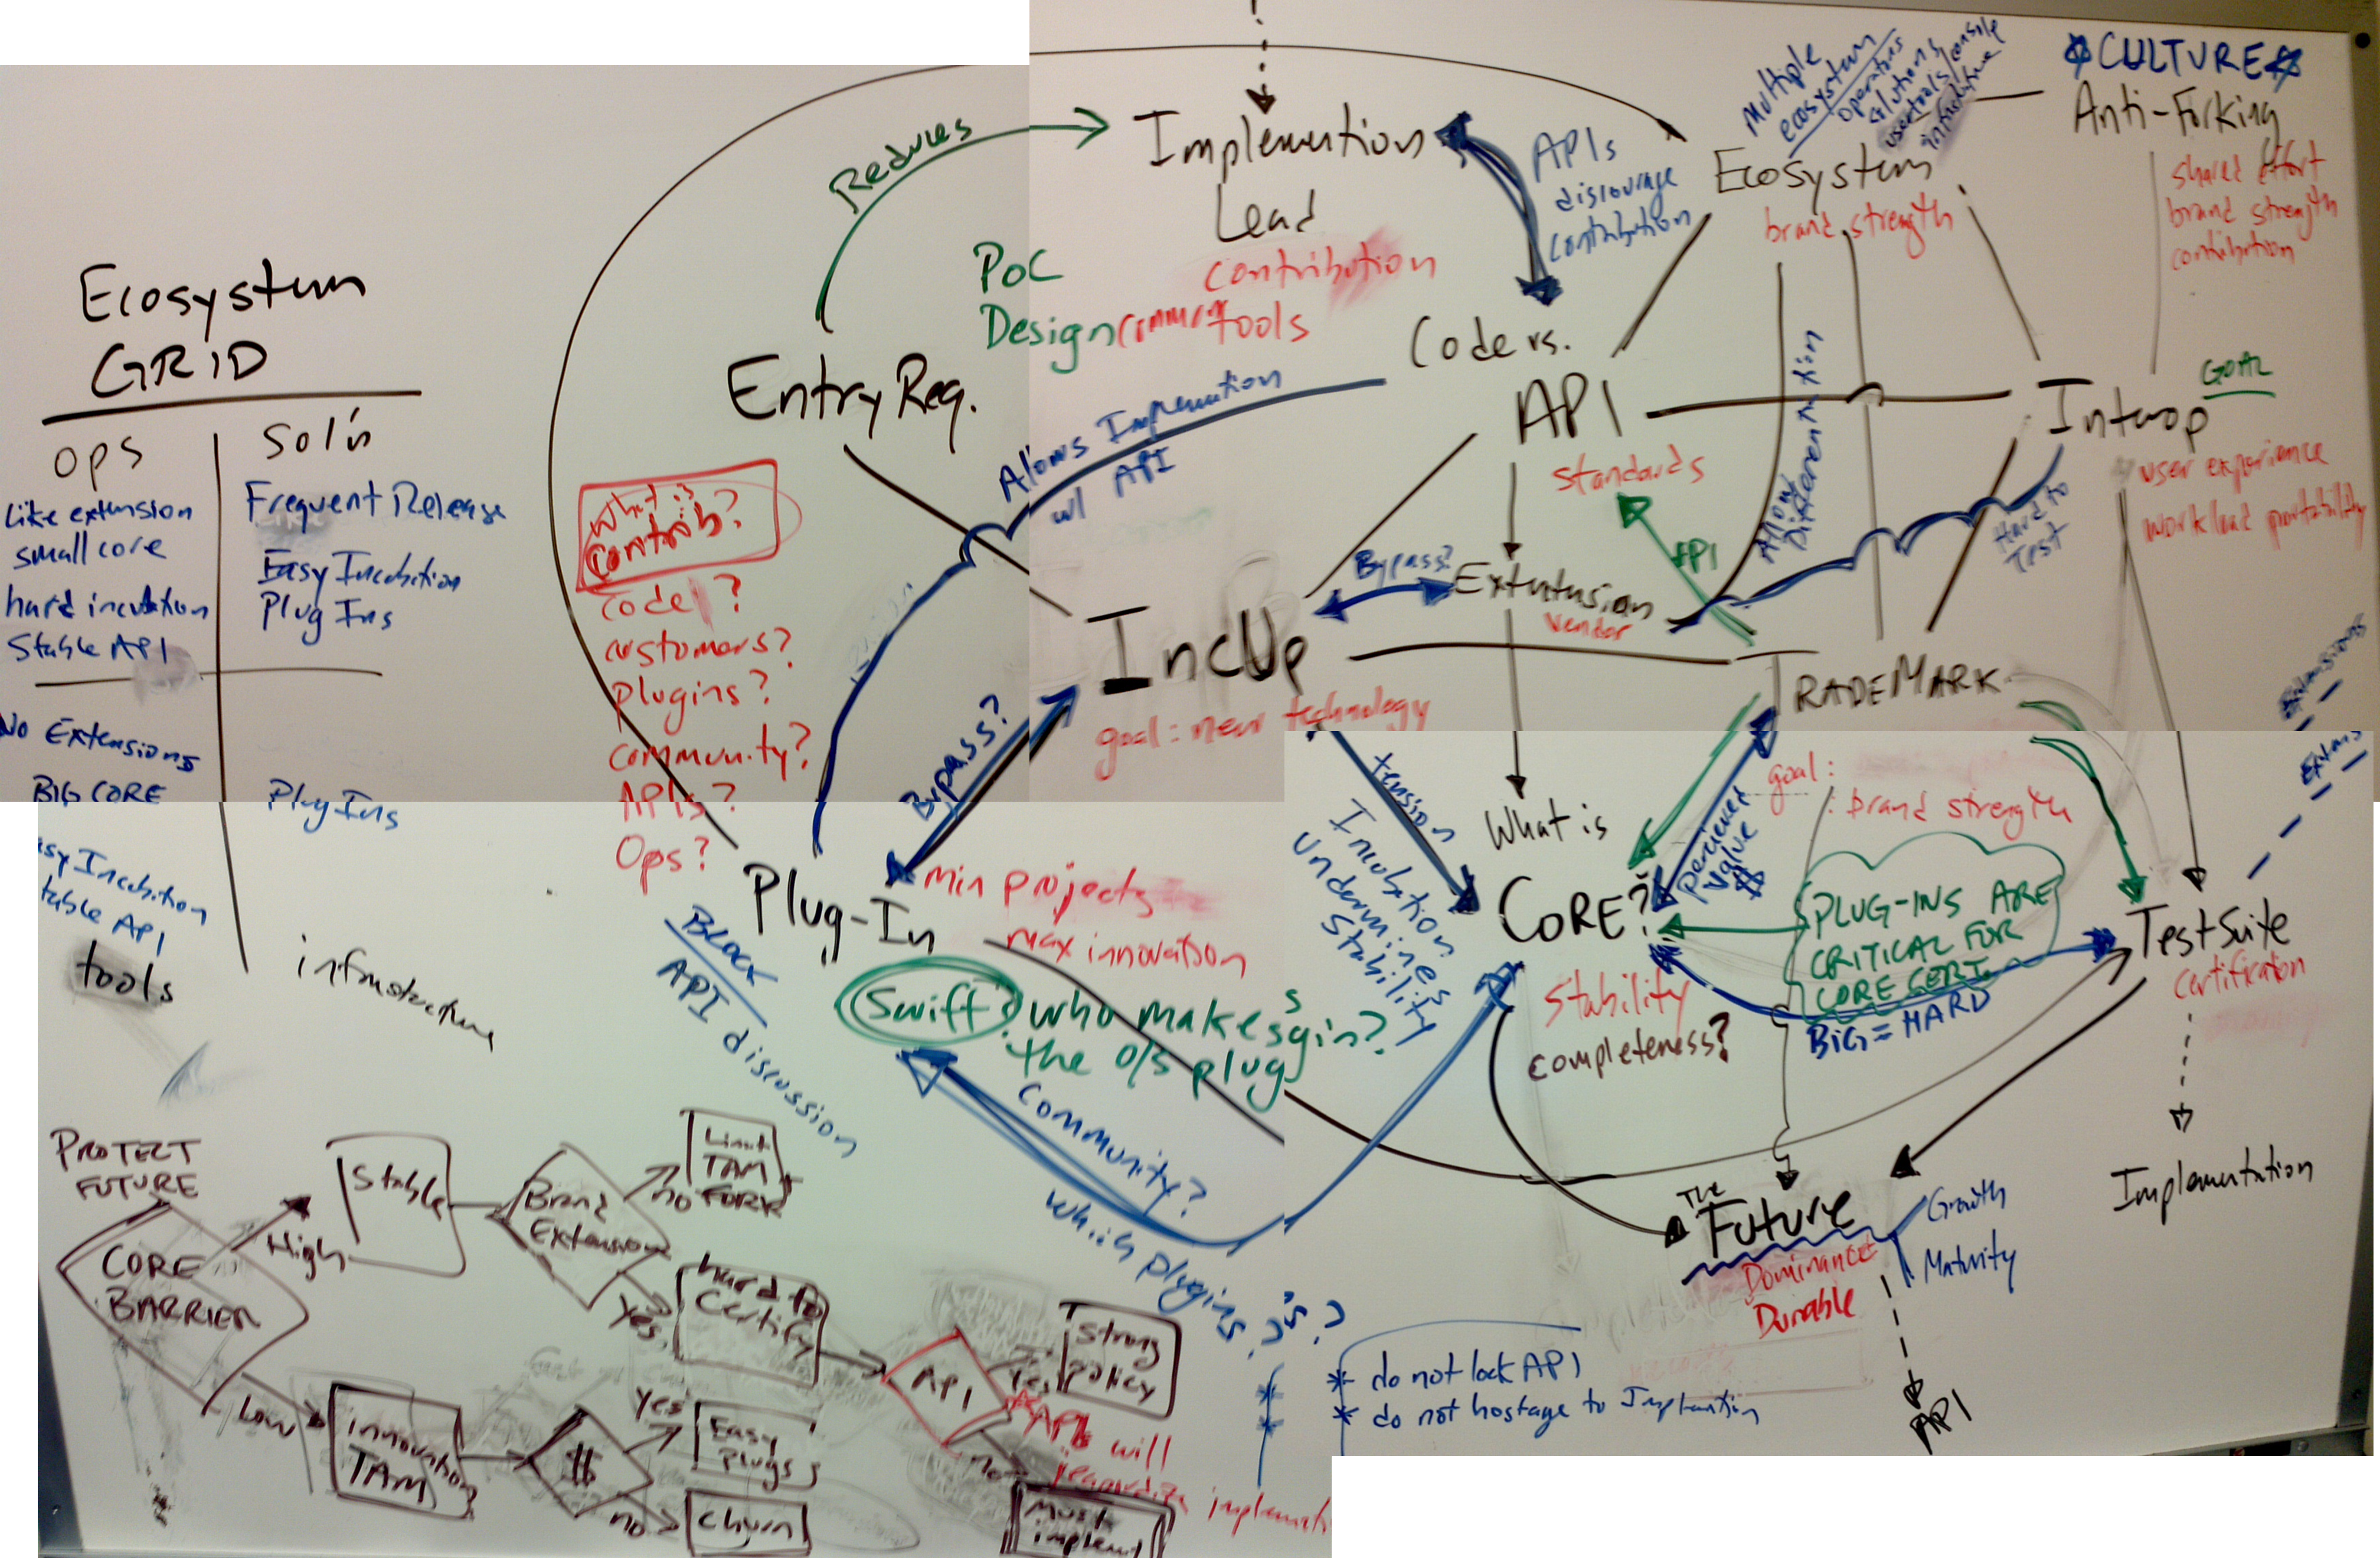 Ecosystem
GRID
ops
Sol'n
Like extension
small core
hard incubation
Stable API
Frequent Release
Easy Incubation
Plug Ins
No Extensions
BIG CORE
Incubation
API
Plug Ins
tools
infrastructure
Reduces
Implemention
Lead
contribution
common tools
PoC
Design
Entry Req.
What is
contrib?
Code ?
customers?
plugins?
community?
APIs?
Ops?
Allows Implemention
w/ API
APIs
discourage
contribution
Coders.
API
standards
Multiple
ecosystem
operations
solutions
user tools/console
Ecosystem
brand strength
CULTURE
Anti-Forking
shared effort
brand strength
contribution
GOAL
Interop
user experience
workload portability
Hard to
Test
Allow
Differentiation
API
Bypass?
Extension
Vendor
IncUp
goal: new technology
TRADEMARK
goal:
: brand strength
Bypass?
Plug-In
min projects
max innovation
BLOCK
API discussion
Swift? who makes
the o/s plug
s
gin?
Community?
which plugins?
is?
tension
Incubation
undermines
Stability
What is
CORE?
Stability
completeness?
perceived
value
$
PLUG-INS ARE
CRITICAL FOR
CORE CERT.
BIG = HARD
Extensions
Test Suite
Certification
Implementation
The
Future
Dominance
Durable
Growth
Maturity
API
* do not lock API
* do not hostage to Implemention
PROTECT
FUTURE
CORE
BARRIER
High
Low
Stable
Brand
Extension
no
Limit
TAM
FORK
Yes
hard to
Certify
API
Yes
Strong
policy
API will
jeopardize
no
Must
implement
innovation
TAM
$
yes
Easy
plugs
no
churn